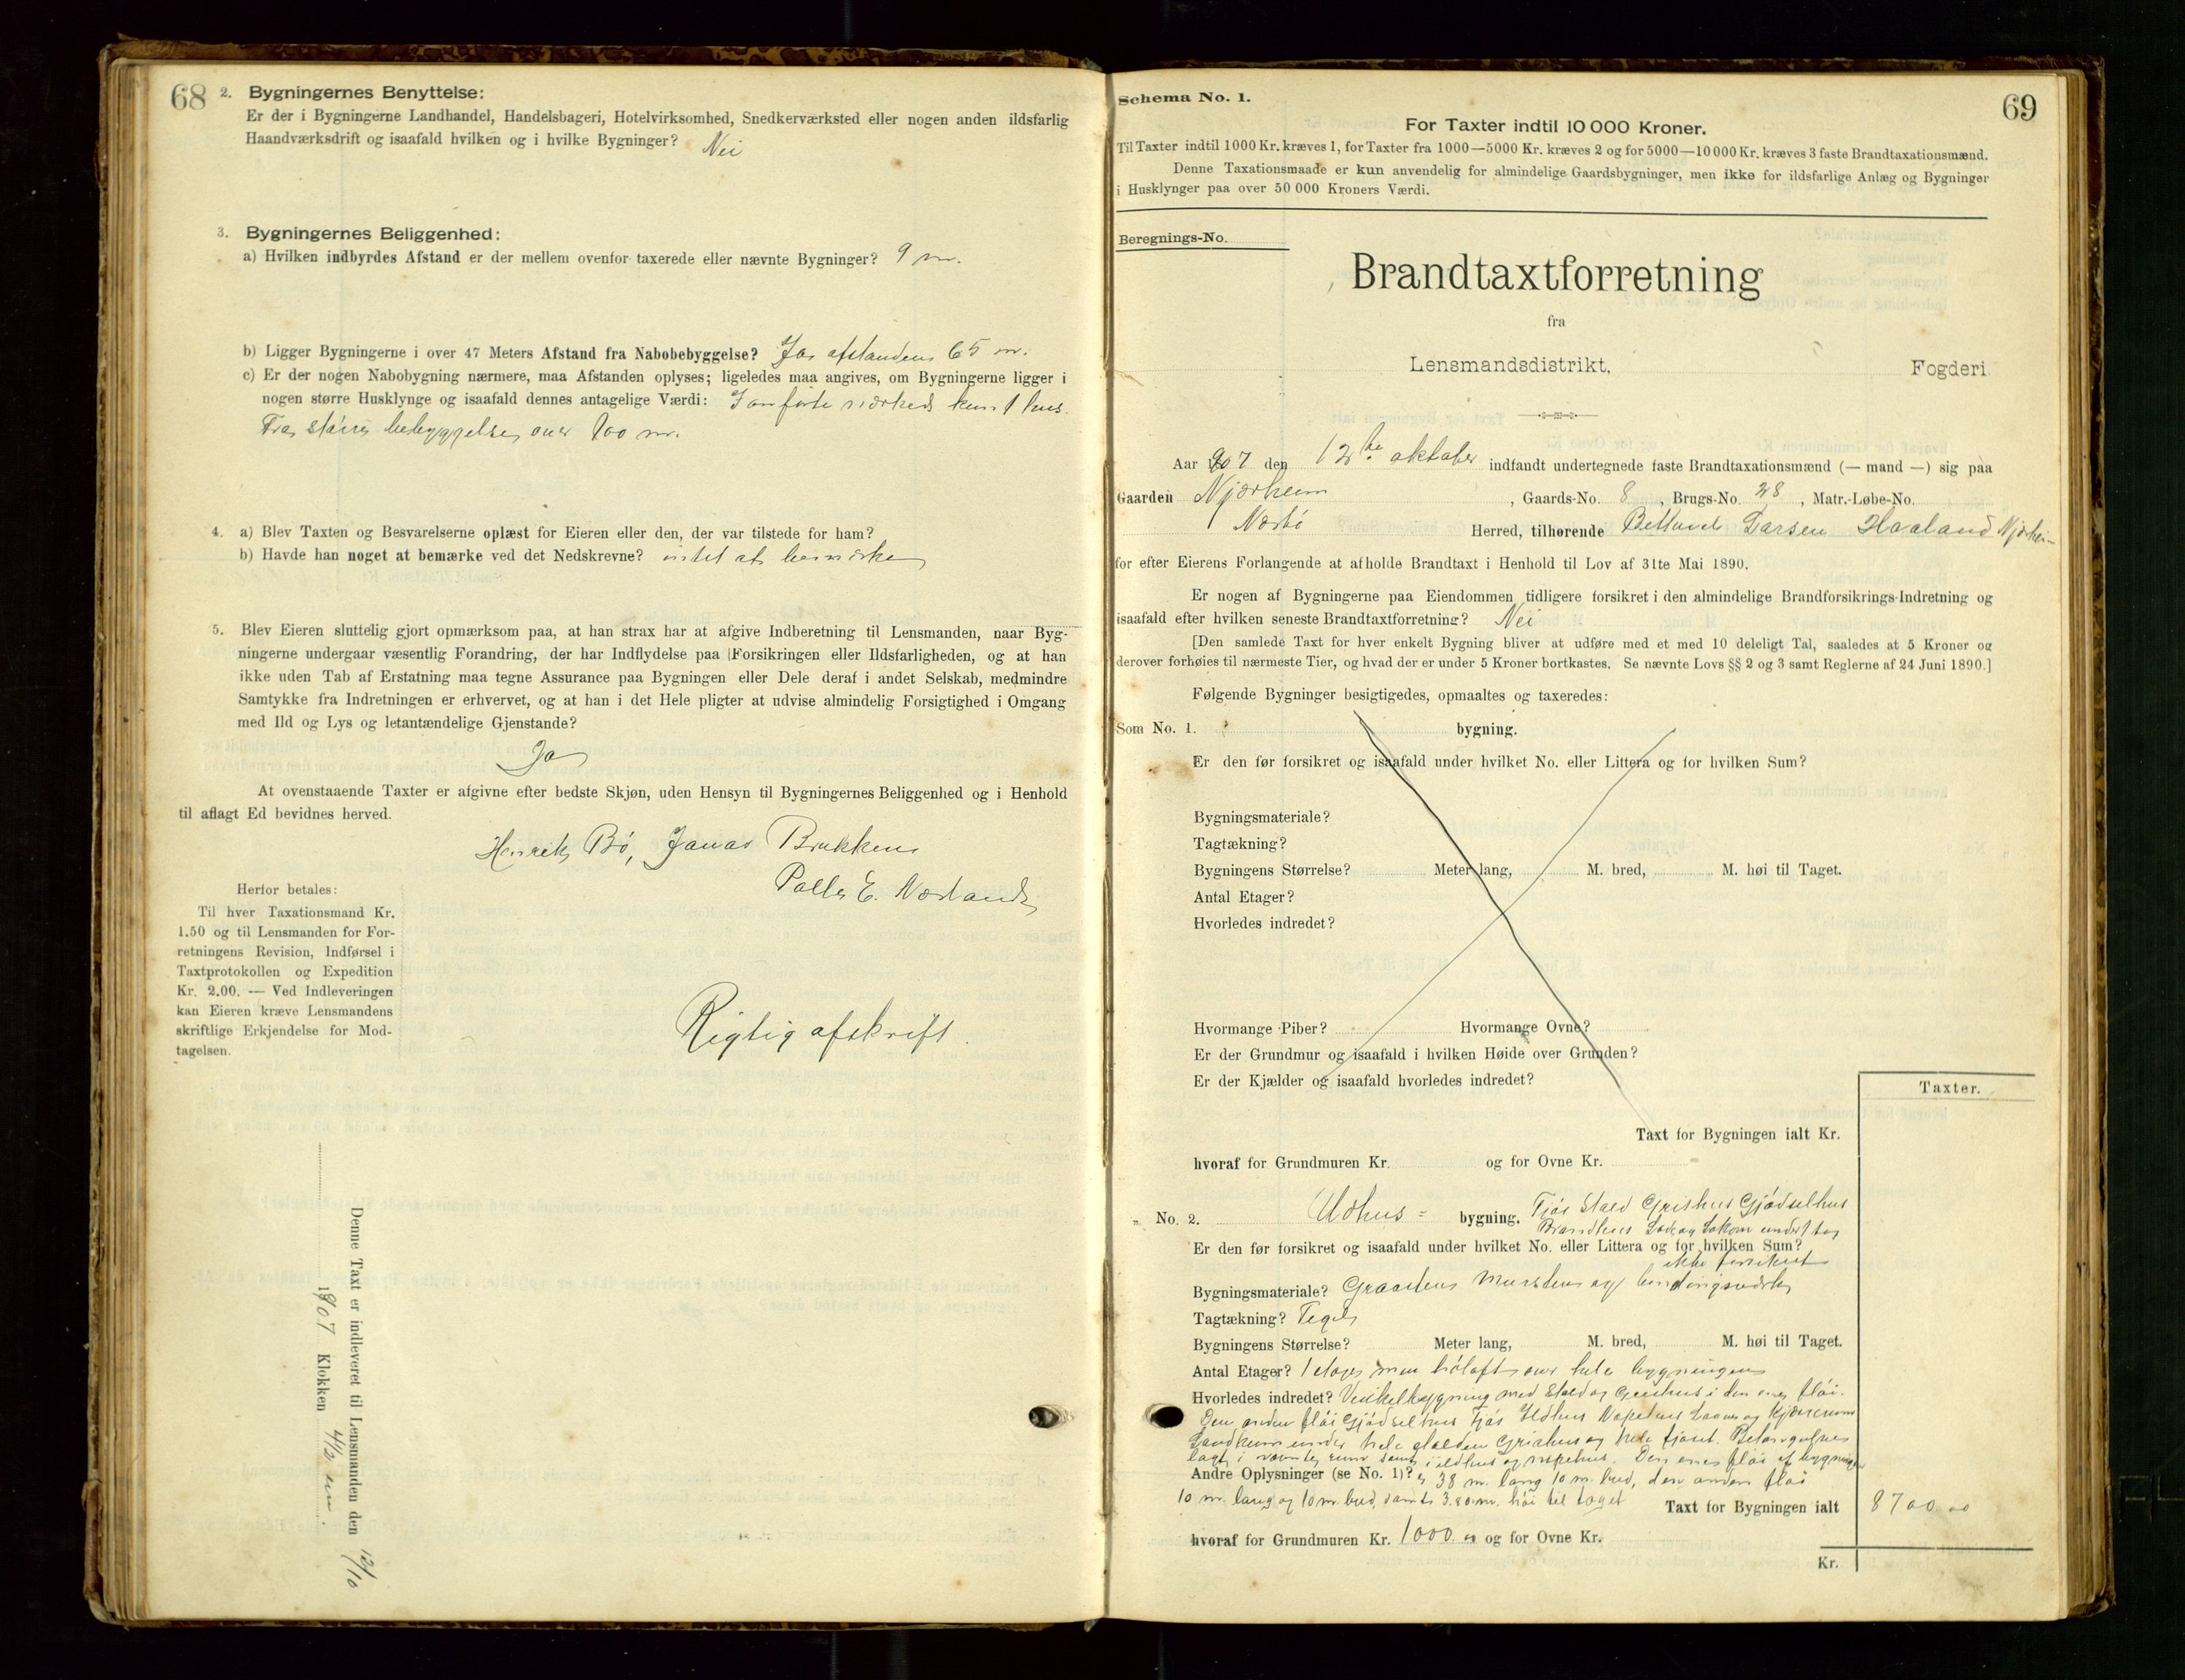 68
2. Bygningernes Benyttelse:
Er der i Bygningerne Landhandel, Handelsbageri, Hotelvirksomhed, Snedkerværksted eller nogen anden ildsfarlig
Haandværksdrift og isaafald hvilken og i hvilke Bygninger? Nei
3. Bygningernes Beliggenhed:
a) Hvilken indbyrdes Afstand er der mellem ovenfor taxerede eller nævnte Bygninger? 9 m.
b) Ligger Bygningerne i over 47 Meters Afstand fra Nabobebyggelse? Ja afstanden 65 m.
c) Er der nogen Nabobygning nærmere, maa Afstanden oplyses; ligeledes maa angives, om Bygningerne ligger i
nogen større Husklynge og isaafald dennes antagelige Værdi: I anførte nærhed kun 1 hus.
Fra større bebyggelse over 100 m.
4. a) Blev Taxten og Besvarelserne oplæst for Eieren eller den, der var tilstede for ham?
b) Havde han noget at bemærke ved det Nedskrevne? intet at bemærke
5. Blev Eieren sluttelig gjort opmærksom paa, at han strax har at afgive Indberetning til Lensmanden, naar Byg-
ningerne undergaar væsentlig Forandring, der har Indflydelse paa Forsikringen eller Ildsfarligheden, og at han
ikke uden Tab af Erstatning maa tegne Assurance paa Bygningen eller Dele deraf i andet Selskab, medmindre
Samtykke fra Indretningen er erhvervet, og at han i det Hele pligter at udvise almindelig Forsigtighed i Omgang
med Ild og Lys og letantændelige Gjenstande?
Ja
At ovenstaaende Taxter er afgivne efter bedste Skjøn, uden Hensyn til Bygningernes Beliggenhed og i Henhold
til aflagt Ed bevidnes herved.
Henrik Bø, Jonas Brekken
Palle E. Nærland
Herfor betales:
Til hver Taxationsmand Kr.
1.50 og til Lensmanden for For-
retningens Revision, Indførsel i
Taxtprotokollen og Expedition
Kr. 2.00. — Ved Indleveringen
kan Eieren kræve Lensmandens
skriftlige Erkjendelse for Mod-
tagelsen.
Rigtig afskrift.
Denne Taxt er indleveret til Lensmanden den 12/10
1907 Klokken 4 1/2 em.
69
Schema No. 1.
For Taxter indtil 10 000 Kroner.
Til Taxter indtil 1000 Kr. kræves 1, for Taxter fra 1000—5000 Kr. kræves 2 og for 5000—10 000 Kr. kræves 3 faste Brandtaxationsmænd.
Denne Taxationsmaade er kun anvendelig for almindelige Gaardsbygninger, men ikke for ildsfarlige Anlæg og Bygninger
i Husklynger paa over 50 000 Kroners Værdi.
Beregnings-No.
Brandtaxtforretning
fra
Lensmandsdistrikt, Fogderi.
Aar 1907 den 12te oktober indfandt undertegnede faste Brandtaxationsmænd (— mand —) sig paa
Gaarden Njærheim, Gaards-No. 8, Brugs-No. 28, Matr.-Løbe-No.
Nærbø Herred, tilhørende Larsen Haaland Njærheim
for efter Eierens Forlangende at afholde Brandtaxt i Henhold til Lov af 31te Mai 1890.
Er nogen af Bygningerne paa Eiendommen tidligere forsikret i den almindelige Brandforsikrings-Indretning og
isaafald efter hvilken seneste Brandtaxtforretning? Nei
[Den samlede Taxt for hver enkelt Bygning bliver at udføre med et med 10 deleligt Tal, saaledes at 5 Kroner og
derover forhøies til nærmeste Tier, og hvad der er under 5 Kroner bortkastes. Se nævnte Lovs §§ 2 og 3 samt Reglerne af 24 Juni 1890.]
Følgende Bygninger besigtigedes, opmaaltes og taxeredes:
Som No. 1. bygning.
Er den før forsikret og isaafald under hvilket No. eller Littera og for hvilken Sum?
Bygningsmateriale?
Tagtækning?
Bygningens Størrelse? Meter lang, M. bred, M. høi til Taget.
Antal Etager?
Hvorledes indredet?
Hvormange Piber? Hvormange Ovne?
Er der Grundmur og isaafald i hvilken Høide over Grunden?
Er der Kjælder og isaafald hvorledes indredet?
Taxter.
Taxt for Bygningen ialt Kr.
hvoraf for Grundmuren Kr. og for Ovne Kr.
„ No. 2. Udhus = bygning. Fjøs Stald Grishus Gjødselhus
Brændhus Lade og under 1 tag
Er den før forsikret og isaafald under hvilket No. eller Littera og for hvilken Sum?
ikke forsikret
Bygningsmateriale? Graasten Mursten og bindingsværk
Tagtækning? Tegl
Bygningens Størrelse? Meter lang, M. bred, M. høi til Taget.
Antal Etager? 1 etage men høloft over hele bygningen
Hvorledes indredet? Vinkelbygning med Stald og Grishus i den ene fløi.
Den anden fløi Gjødselhus Fjøs Ildhus Laave og
Landkum under hele stalden Grishus og hele fjøset.
lagt i nævnte rum samt i ildhus og Den ene fløi af bygningen
Andre Oplysninger (se No. 1)? er 38 m. lang 10 m. bred, den anden fløi
10 m. lang og 10 m. bred, samt 3.80 m. høi til taget Taxt for Bygningen ialt 8700 00
hvoraf for Grundmuren Kr. 1000 00 og for Ovne Kr.
Kr.